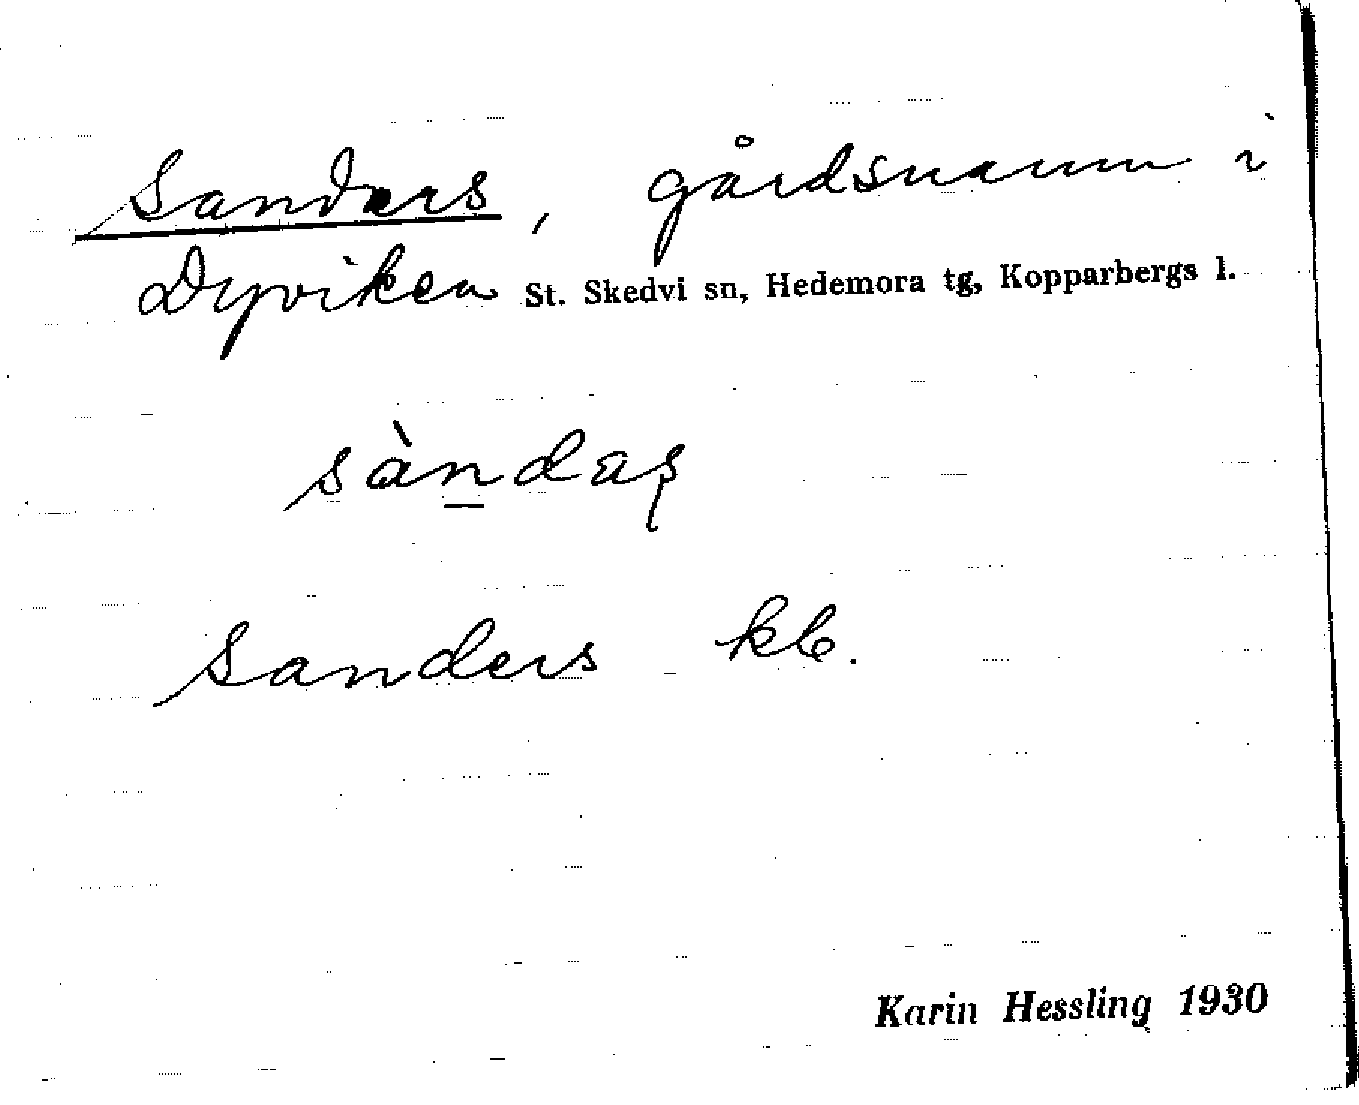 Sanders, gårdsnamn i
Dyviken St. Skedvi sn, Hedemora tg, Kopparbergs l.
sàn̲das̨
Sanders kb.
Karin Hessling 1930